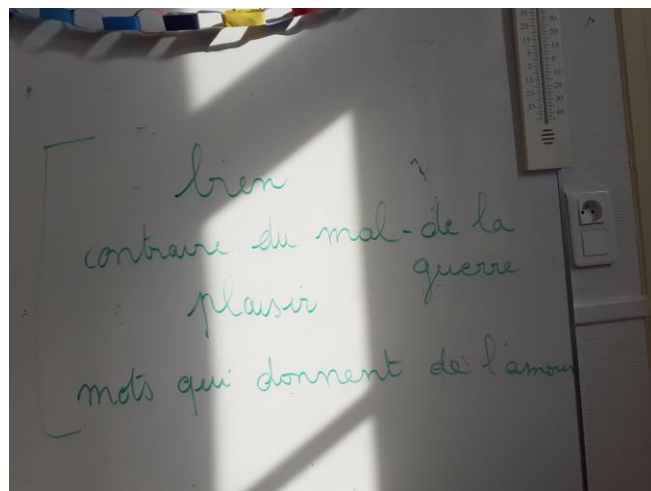 bien
contraire du mal - de la
guerre
plaisir
mots qui donnent de l'amour